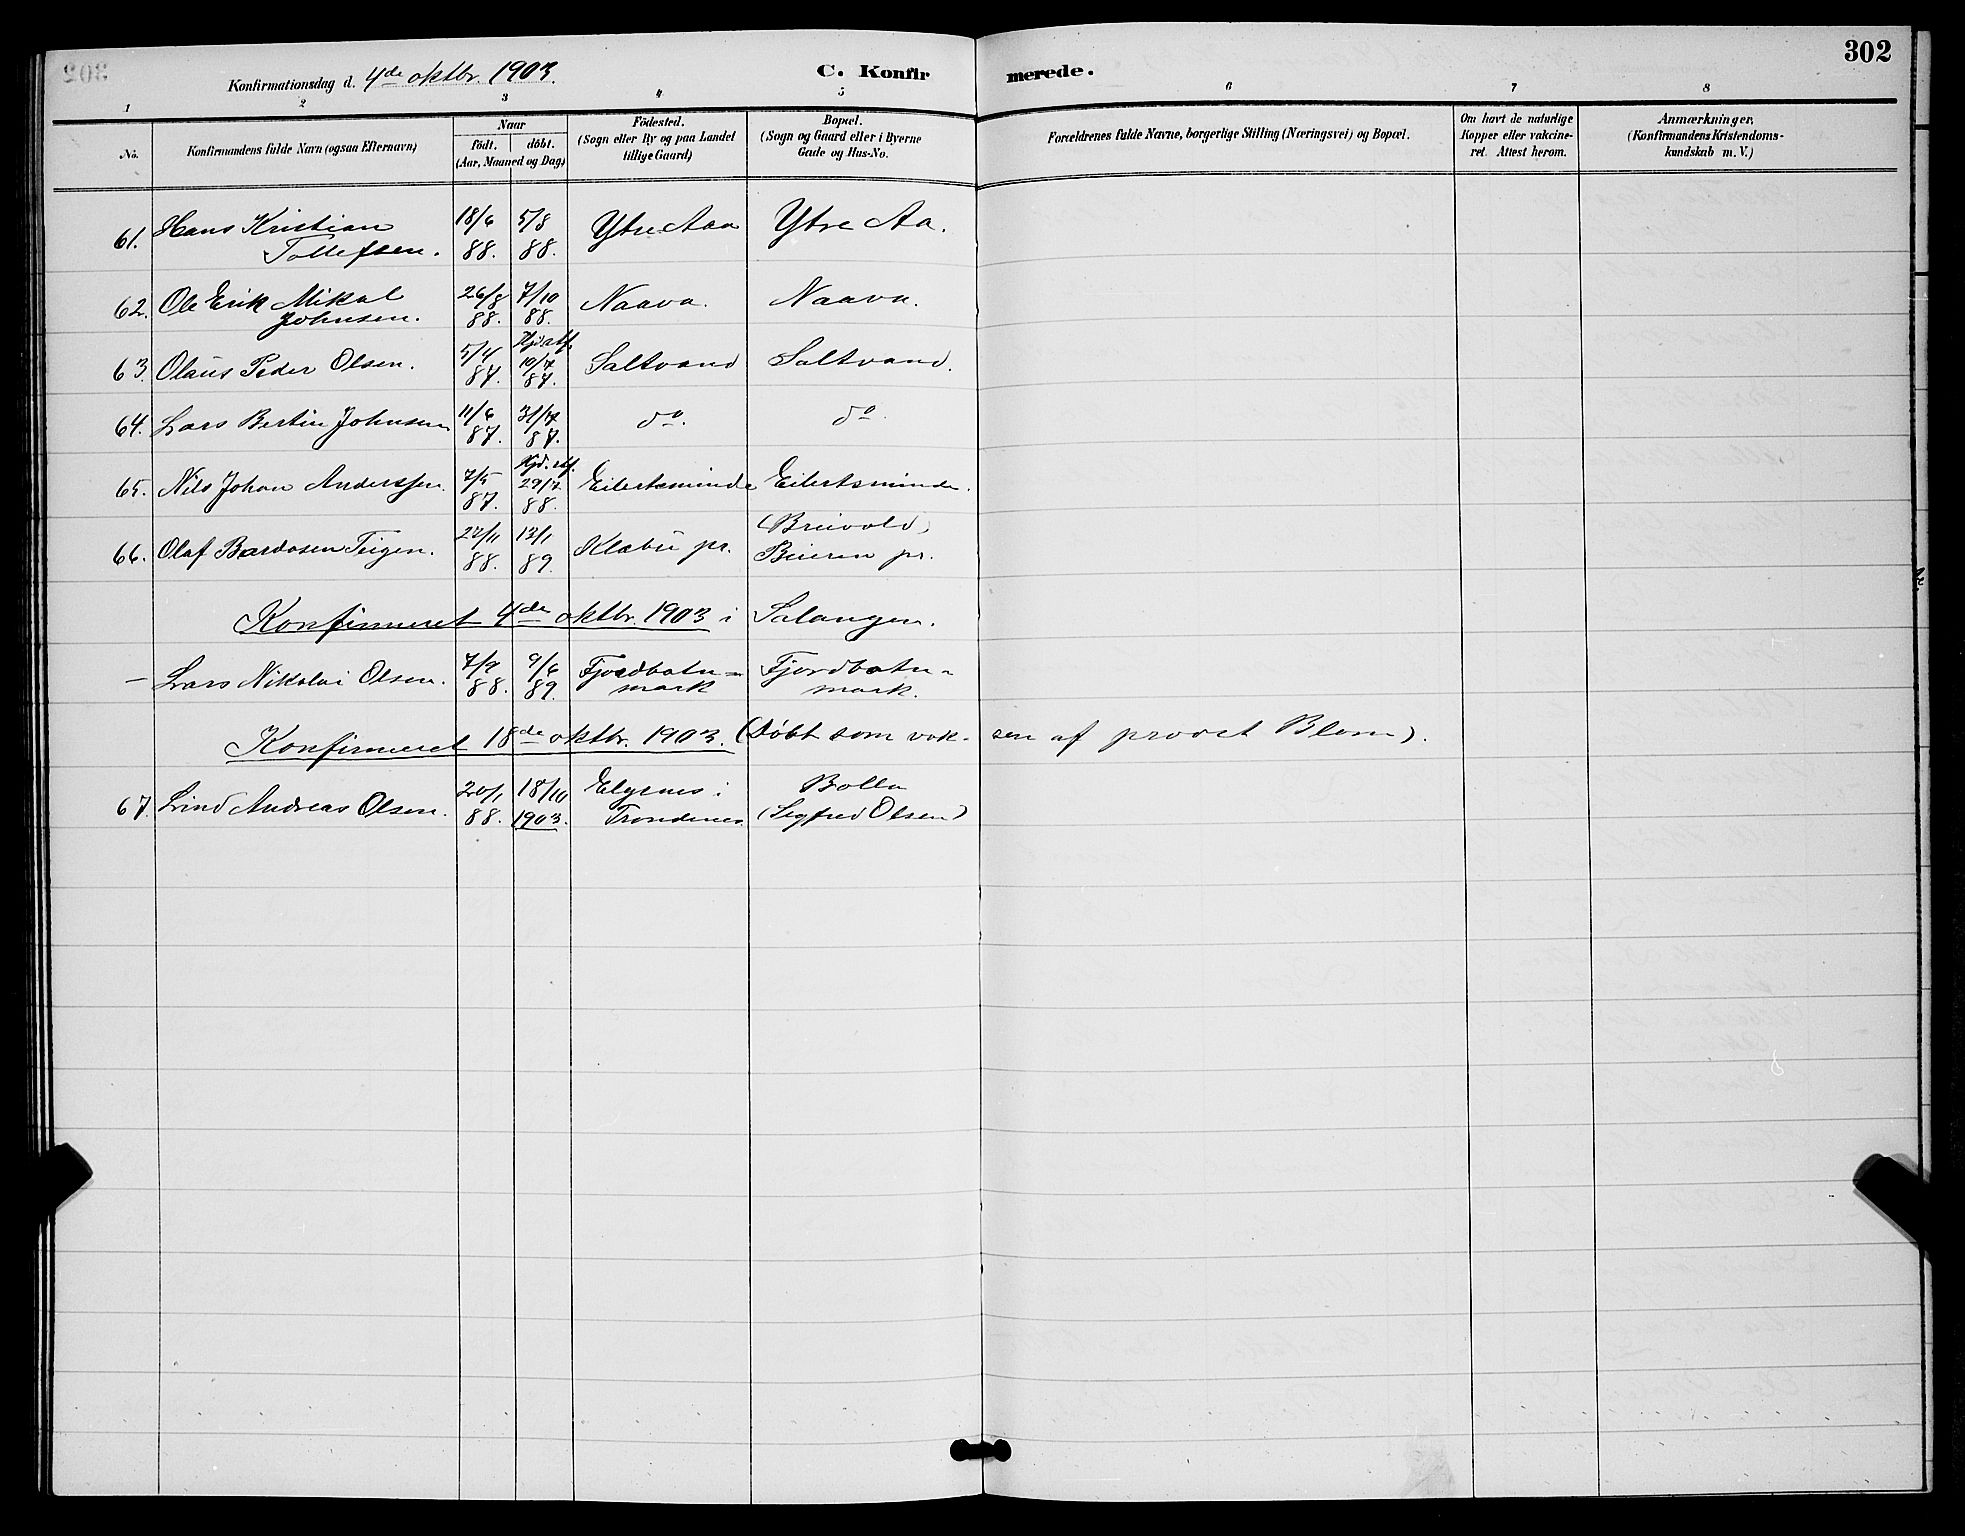 302
Konfirmationsdag d. 4de oktbr. 1903.
C. Konfirmerede.
1 2 3 4 5 6 7 8
No.
Konfirmandens fulde Navn (ogsaa Efternavn)
Naar
födt. döbt.
(Aar, Maaned og Dag)
Födested.
(Sogn eller By og paa Landet
tillige Gaard)
Bopæl.
(Sogn og Gaard eller i Byerne
Gade og Hus-No.
Forældrenes fulde Navne, borgerlige Stilling (Næringsvei) og Bopæl.
Om havt de naturlige
Kopper eller vakcine-
ret. Attest herom.
Anmærkninger,
(Konfirmandens Kristendoms-
kundskab m. V.)
61. Hans Kristian 18/6 5/8 Ytre Aaa Ytre Aa.
Tollefsen. 88. 88.
62. Ole Erik Mikal 26/8 7/10 Naava. Naava.
Johnsen. 88. 88.
Hjd. stf.
63. Olaus Peder Olsen. 5/4 10/7 Saltvand Saltvand.
87. 87.
64. Lars Bertin Johnsen 11/6 31/7 do. do.
87. 87.
Hjd. stf.
65. Nils Johan Anderssen. 7/5 29/7 Eilertsminde Eilertsminde.
87. 88.
66. Olaf Bardosen Teigen. 22/11 13/1 Klæbu pr. (Breivold)
88. 89. Beieren pr.
Konfirmeret 4de oktbr. 1903 i Salangen.
– Lars Nikolai Olsen. 7/9 9/6 Fjordbotn= Fjordbotn=
88. 89. mark mark.
Konfirmeret 18de oktbr. 1903. (Døbt som voksen af provst Blom).
67. Lind Andreas Olsen. 20/1 18/10 Elgenes i Bolla
88. 1903. Trondenes (Sigfred Olsen)